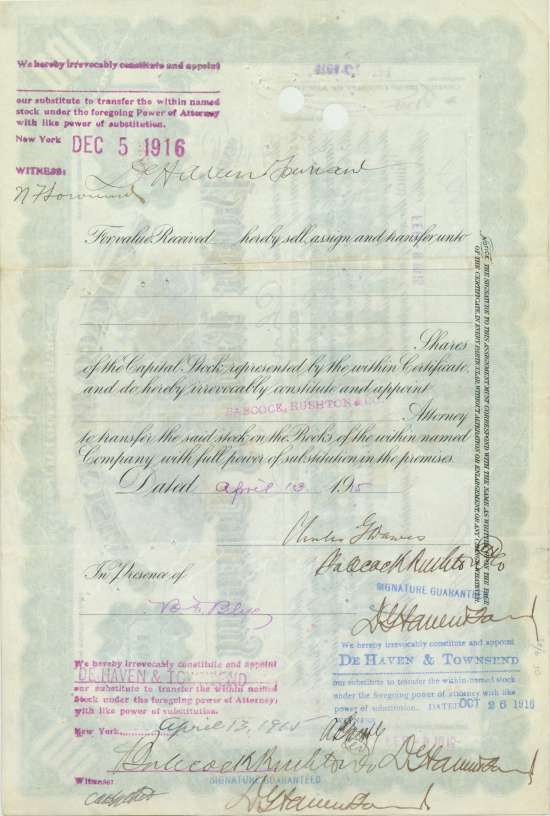 We hereby irrevocably constitute and appoint
our substitute to transfer the within named
stock under the foregoing Power of Attorney
with like power of substitution.
New York DEC 5 1916
WITNESS:
De Haven Townsend
For value Received hereby sell, assign and transfer unto
Shares
of the Capital Stock represented by the within Certificate,
and do hereby irrevocably constitute and appoint
BABCOCK, RUSHTON & CO.
Attorney
to transfer the said stock on the Books of the within named
Company with full power of substitution in the premises.
Dated April 13 1915
Charles G Dawes
Babcock Rushton & Co
In Presence of
SIGNATURE GUARANTEED
De Haven Townsend
NOTICE. THE SIGNATURE TO THIS ASSIGNMENT MUST CORRESPOND WITH THE NAME AS WRITTEN UPON THE FACE
OF THE CERTIFICATE, IN EVERY PARTICULAR, WITHOUT ALTERATION OR ENLARGEMENT, OR ANY CHANGE WHATEVER.
We hereby irrevocably constitute and appoint
DE HAVEN & TOWNSEND
our substitute to transfer the within named
Stock under the foregoing Power of Attorney;
with like power of substitution.
New York April 13, 1915
Babcock Rushton & Co
Witness:
SIGNATURE GUARANTEED
De Haven Townsend
We hereby irrevocably constitute and appoint
DE HAVEN & TOWNSEND
our substitute to transfer the within named stock
under the foregoing power of attorney with like
power of substitution. DATED OCT 26 1916
De Haven Townsend